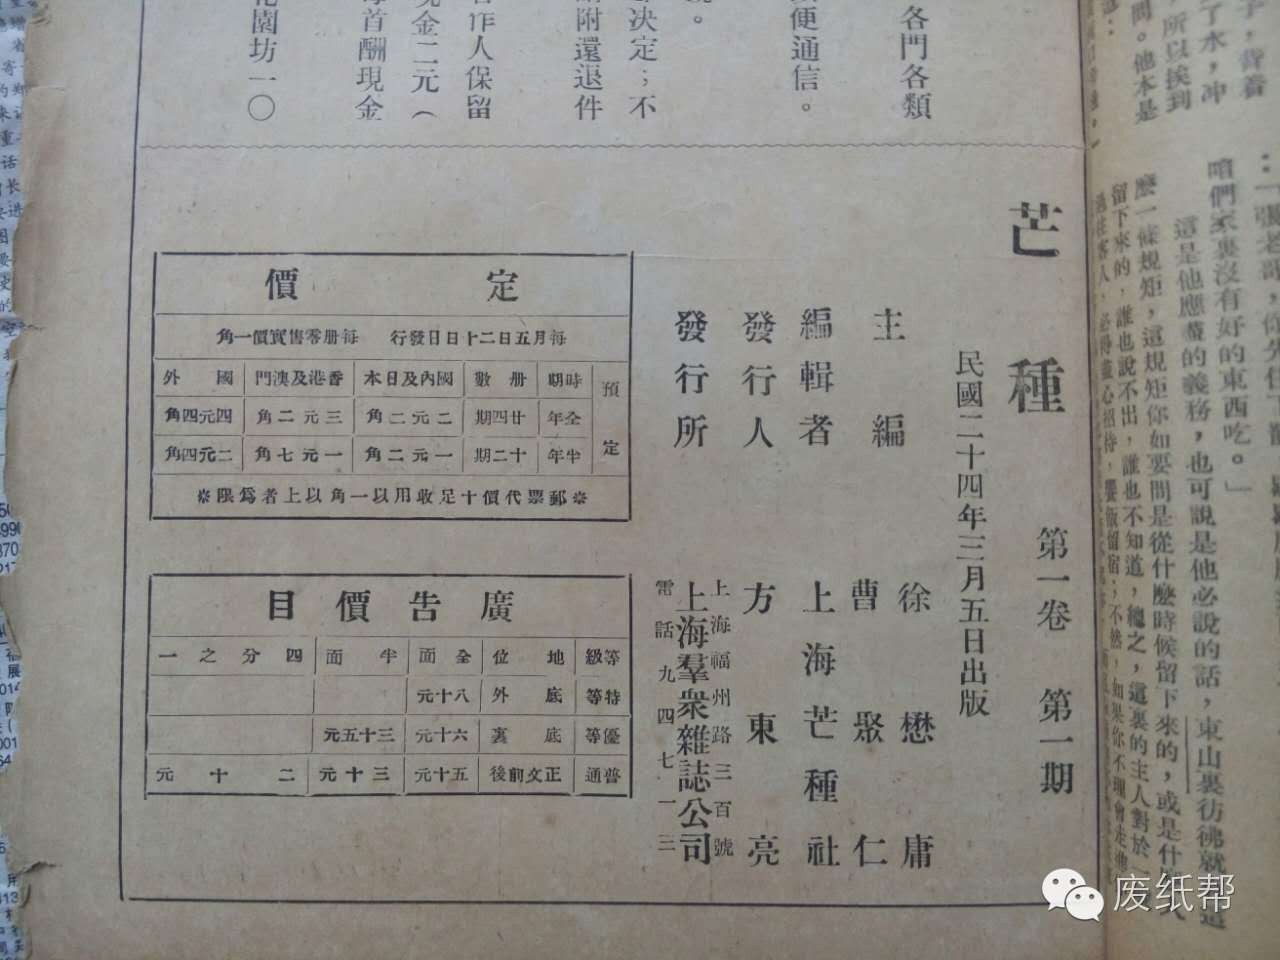 咱們家裏沒有好的東西吃。」
這是他應盡的義務，也可說是他必說的話，東山裏彷彿就
麼一條規矩，這規矩你如要問是從什麼時候留下來的，或是什
留下來的，誰也說不出，誰也不知道，總之，這裏的主人對於
了水，冲
，所以挨到
問。他本是
各門各類
便通信。
決定；不
附還退件
作人保留
現金二元（
首酬現金
花園坊一〇
芒種
第一卷 第一期
民國二十四年三月五日出版
主編 徐懋庸
曹聚仁
編輯者 上海芒種社
發行人 方東亮
發行所 上海羣衆雜誌公司
上海福州路三百號
電話九四七一三
定價
每月五日二十日發行 每册零售實價一角
預定 時期 册數 國內及日本 香港及澳門 國外
全年 廿四期 二元二角 三元二角 四元四角
半年 十二期 一元二角 一元七角 二元四角
※郵票代價十足收用以一角以上者爲限※
廣告價目
等級 地位 全面 半面 四分之一
特等 底外 八十元
優等 底裏 六十元 三十五元
普通 正文前後 五十元 三十元 二十元
废纸帮